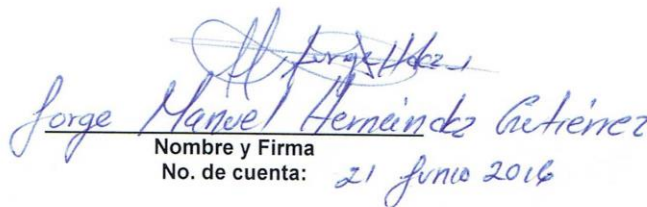 Jorge Hdez
Jorge Manuel Hernández Gutiérrez
Nombre y Firma
No. de cuenta: 21 Junio 2016